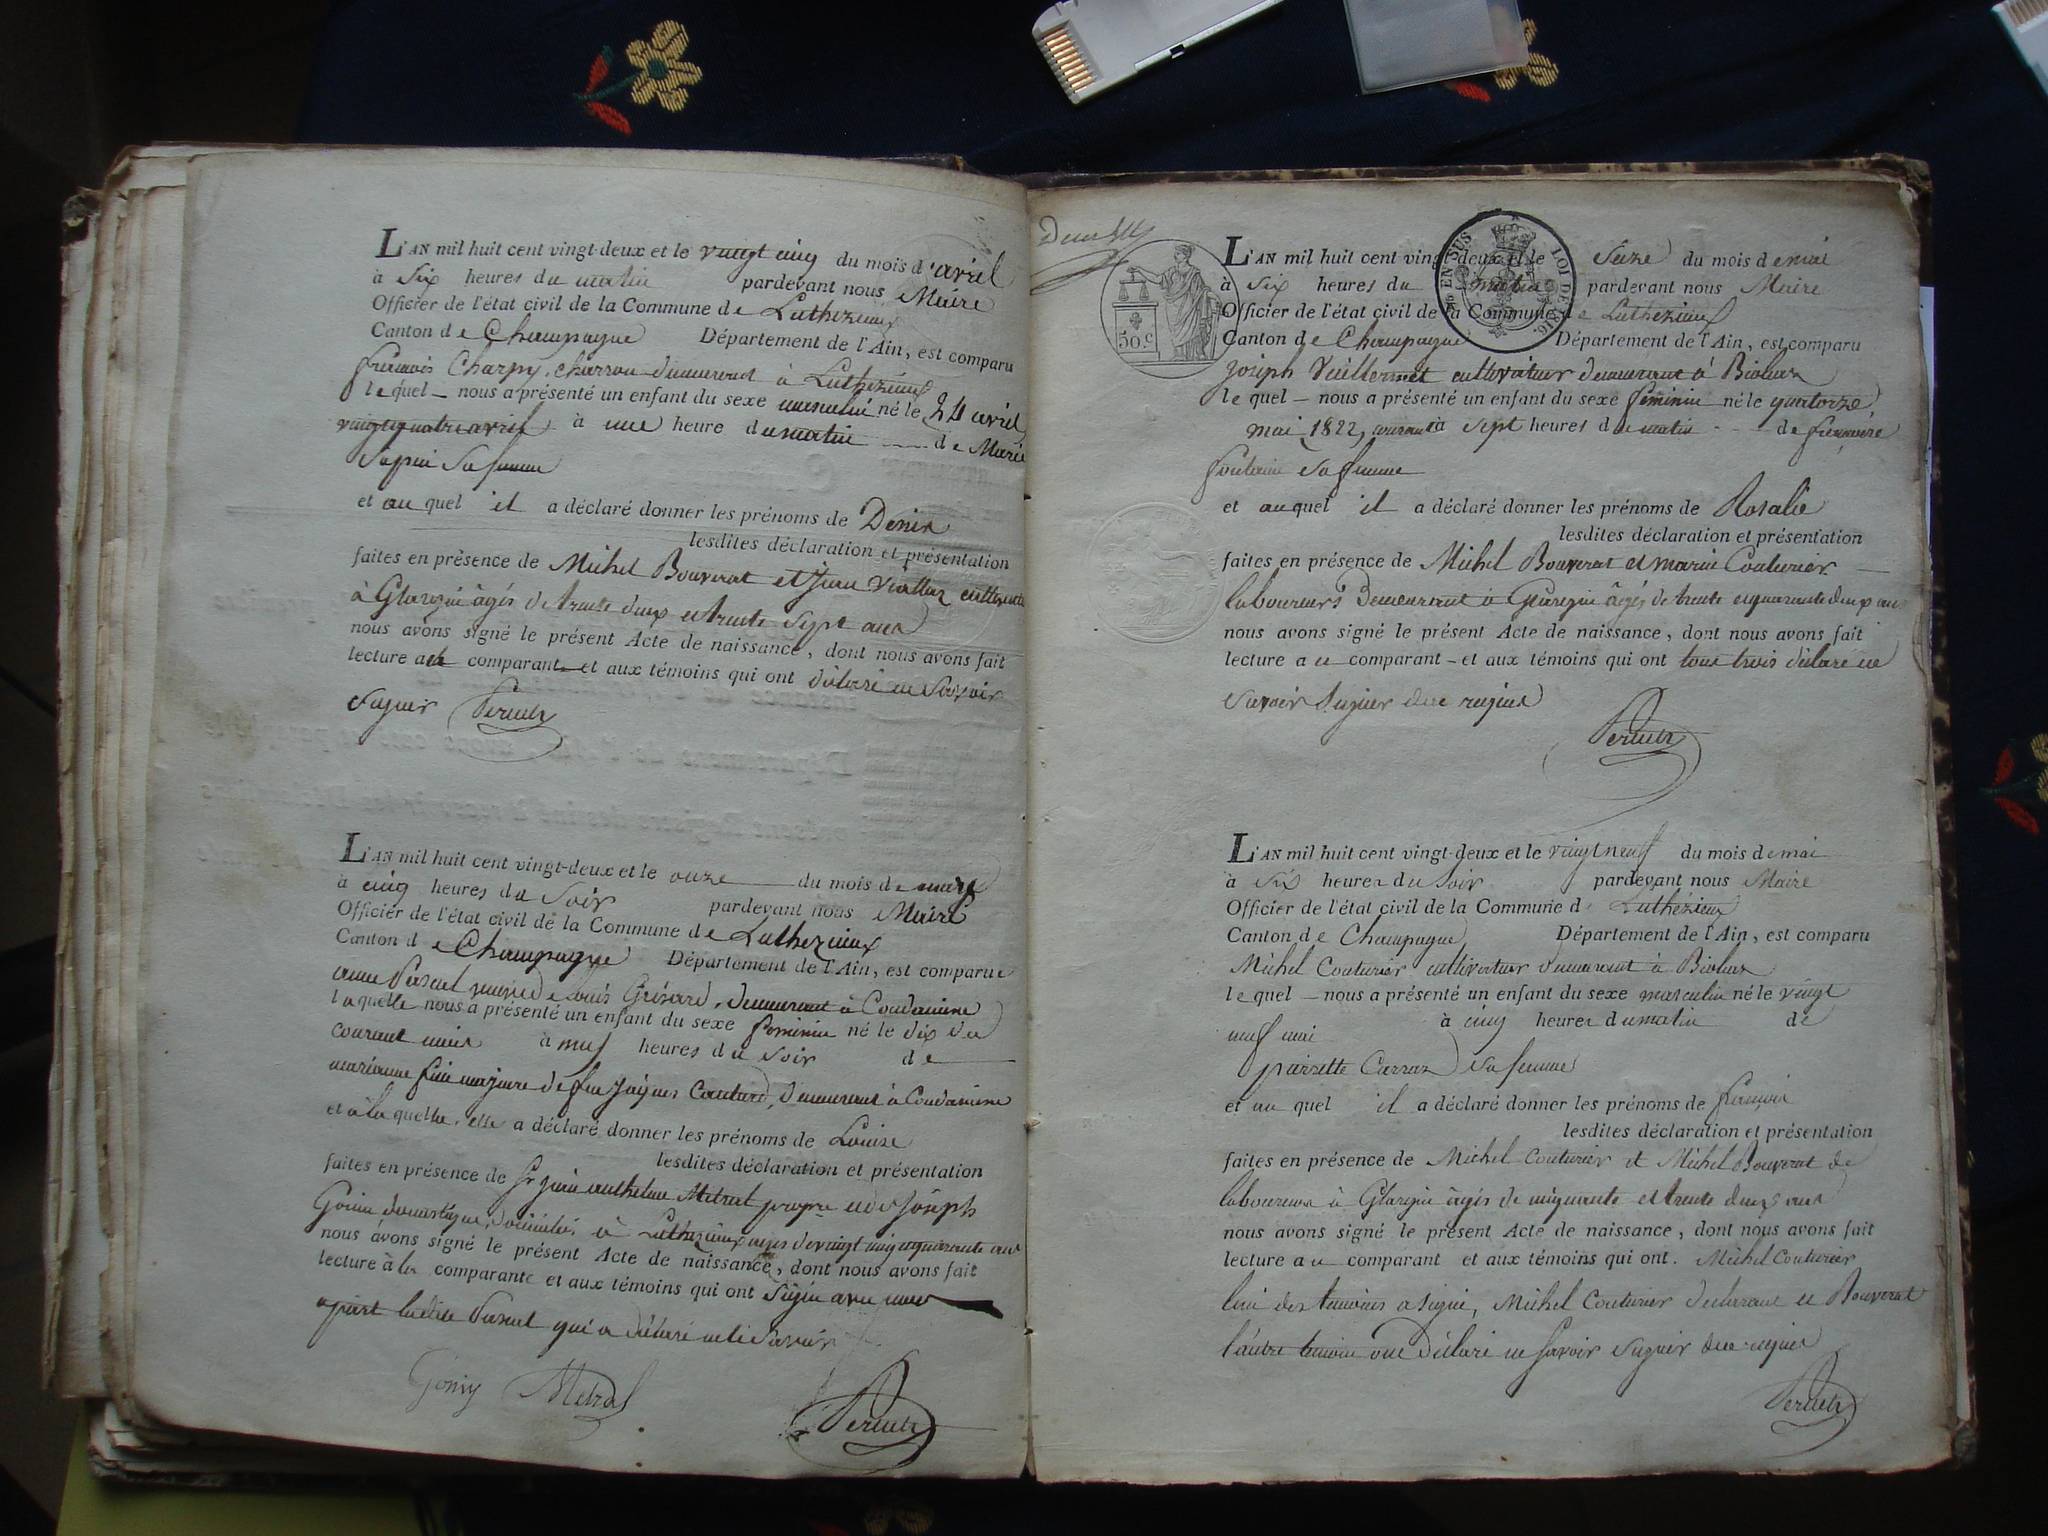 L'AN mil huit cent vingt-deux et le vingt cinq du mois d'avril
à Six heures du matin pardevant nous Maire
Officier de l'état civil de la Commune de Luthezieux
Canton de Champagne Département de l'Ain, est comparu
françois Charpy, charron demeurant à Luthezieux
lequel nous a présenté un enfant du sexe masculin né le 24 avril
vingt quatre avril à une heure du matin de Marie
Sapin Sa femme
et au quel il a déclaré donner les prénoms de Denis
lesdites déclaration et présentation
faites en présence de Michel Bouverat et Jean Viallaz
à Glargin âgés de trente deux et trente Sept ans
nous avons signé le présent Acte de naissance, dont nous avons fait
lecture au comparant et aux témoins qui ont déclaré ne Savoir
Signer
L'AN mil huit cent vingt-deux et le onze du mois de may
à cinq heures du Soir pardevant nous Maire
Officier de l'état civil de la Commune de Luthezieux
Canton de Champagne Département de l'Ain, est comparue
anne veuve de Louis demeurant à Condamine
laquelle nous a présenté un enfant du sexe féminin né le dix du
courant mois à neuf heures du Soir de
marianne majeure de feu Jaques demeurant à Condamine
et à la quelle, elle a déclaré donner les prénoms de Louise
lesdites déclaration et présentation
faites en présence de Sr jean anthelme Metral propre et de Joseph
domestique, domiciliés à Luthezieux âgés de vingt cinq et quarante ans
nous avons signé le présent Acte de naissance, dont nous avons fait
lecture à la comparante et aux témoins qui ont Signé avec nous
apart ladite qui a déclaré ne le Savoir
Goniy Metral
L'AN mil huit cent vingt-deux et le Seize du mois de mai
à Six heures du matin pardevant nous Maire
Officier de l'état civil de la Commune de Luthezieux
Canton de Champagne Département de l'Ain, est comparu
EN SUS LOI DE 1816.
50.C
joseph Vuillermet cultivateur demeurant à Bioleaz
lequel nous a présenté un enfant du sexe féminin né le quatorze
mai 1822, courant à Sept heures du matin de
Sa femme
et auquel il a déclaré donner les prénoms de Rosalie
lesdites déclaration et présentation
faites en présence de Michel Bouverat et Couturier
laboureurs Demeurant à Glargin âgés de trente et quarante deux ans
nous avons signé le présent Acte de naissance, dont nous avons fait
lecture au comparant et aux témoins qui ont tous trois déclaré ne
Savoir Signer de ce requis
L'AN mil huit cent vingt-deux et le vingt neuf du mois de mai
à Six heures du Soir pardevant nous Maire
Officier de l'état civil de la Commune de Luthezieux
Canton de Champagne Département de l'Ain, est comparu
Michel Couturier cultivateur demeurant à Bioleaz
lequel nous a présenté un enfant du sexe masculin né le vingt
neuf mai à cinq heures du matin de
pierrette Carraz Sa femme
et au quel il a déclaré donner les prénoms de françois
lesdites déclaration et présentation
faites en présence de Michel Couturier et Michel Bouverat
laboureurs à Glargin âgés de cinquante et trente deux ans
nous avons signé le présent Acte de naissance, dont nous avons fait
lecture au comparant et aux témoins qui ont. Michel Couturier
l'un des témoins a Signé, Michel Couturier déclarant et Bouverat
l'autre témoin ont Déclaré ne Savoir Signer de ce requis